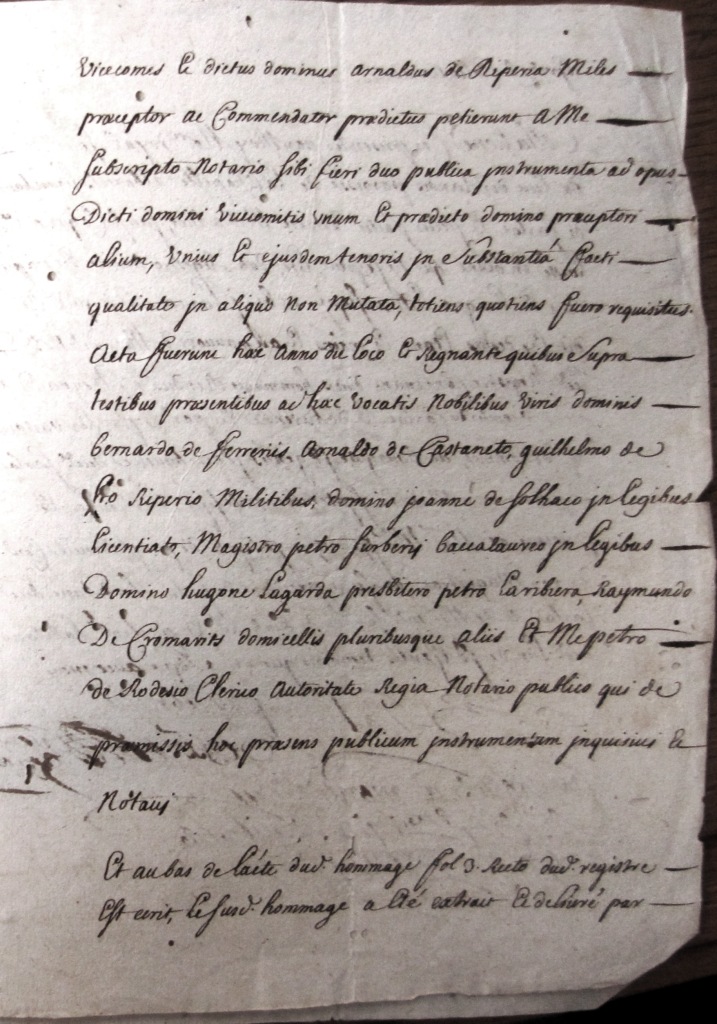 Vicecomes Et dictus dominus arnaldus de Riperia Miles
præceptor ac Commendator prædictus petierunt A Me
Subscripto Notario sibi fieri duo publica jnstrumenta ad opus
Dicti domini Vicecomitis Vnum Et prædicto domino præceptori
alium, Vnius Et ejusdem tenoris jn Substantiâ ffacti
qualitate jn aliquo Non Mutata, totiens quotiens ffuero requisitus.
Acta ffuerunt hæc Anno die loco Et Regnante quibus Supra
testibus præsentibus ad hæc Vocatis Nobilibus Viris dominis
bernardo de fferreriis, Arnaldo de Castaneto, guilhelmo de
Riperio Militibus, domino joanne de Solhaco jn legibus
licentiato, Magistro petro Surberij baccalaureo jn legibus
Domino hugone Lagarda presbitero petro laribiera, Raymundo
De Cromarits domicellis pluribusque aliis Et Me petro
de Rodesio Clerico Autoritate Regia Notario publico qui de
præmissis hoc præsens publicum jnstrumentum jnquisivi Et
Notavi
Et au bas de l'acte dud. hommage fol 3. Recto dud. registre
Est ecrit, Le susd. hommage a Eté extrait Et deliuré par